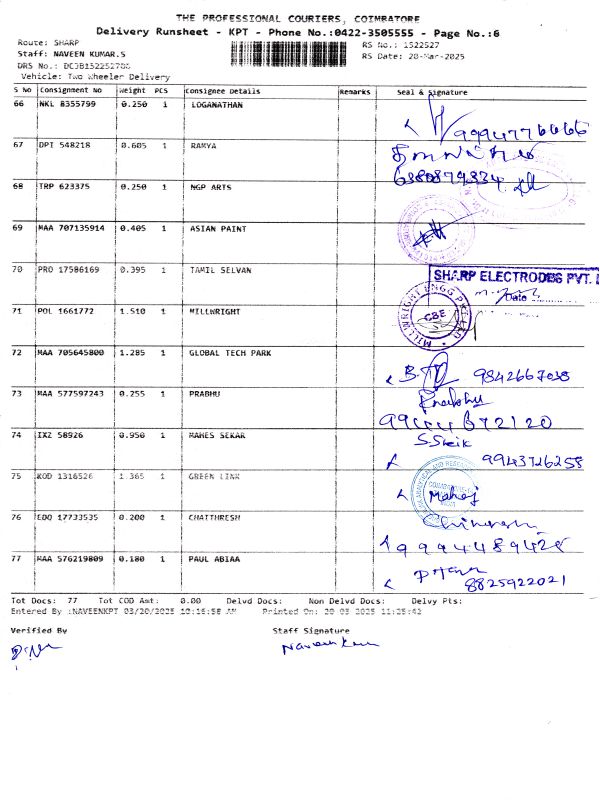 THE PROFESSIONAL COURIERS, COIMBATORE
Delivery Runsheet - KPT - Phone No.:0422-3505555 - Page No.:6
Route: SHARP RS No.: 1522527
Staff: NAVEEN KUMAR.S RS Date: 20-Mar-2025
DRS No.: DCJB152252700
Vehicle: Two Wheeler Delivery
S No Consignment No Weight PCS Consignee Details Remarks Seal & Signature
66 NKL 8355799 0.250 1 LOGANATHAN
9994776666
67 DPI 548218 0.605 1 RAMYA
68 TRP 623375 0.250 1 NGP ARTS
6380879334
69 MAA 707135914 0.405 1 ASIAN PAINT
70 PRO 17586169 0.395 1 TAMIL SELVAN
SHARP ELECTRODES PVT.
Date
71 POL 1661772 1.510 1 MILLWRIGHT
MILLWRIGHT ENGG PVT LTD
CBE
72 MAA 705645800 1.285 1 GLOBAL TECH PARK
9842667038
73 MAA 577597243 0.255 1 PRABHU
Prabhu
74 IXZ 58926 0.950 1 MAHES SEKAR
9943726258
75 KOD 1316526 1.365 1 GREEN LINK
76 EDQ 17733535 0.200 1 CHATTHRESH
9994489428
77 MAA 576219809 0.180 1 PAUL ABIAA
8825922021
Tot Docs: 77 Tot COD Amt: 0.00 Delvd Docs: Non Delvd Docs: Delvy Pts:
Entered By :NAVEENKPT 03/20/2025 10:16:58 AM Printed On: 20-03-2025 11:25:42
Verified By Staff Signature
Naveen Kum